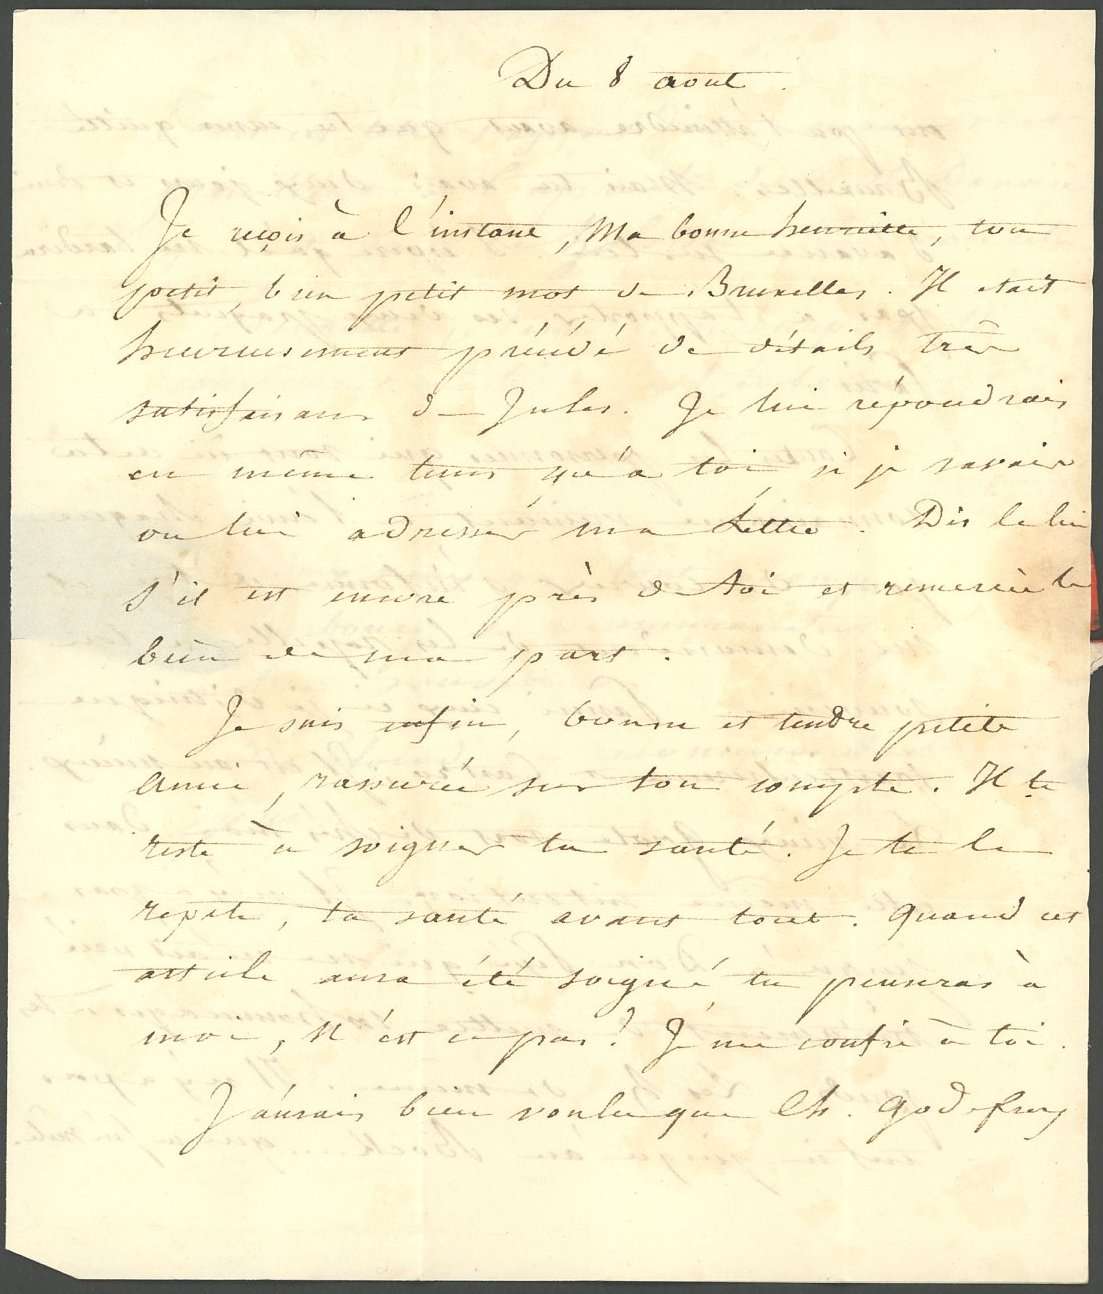 Du 8 aout.
Je reçois à l'instant, Ma bonne henriette, ton
petit, bien petit mot de Bruxelles. Il etait
heureusement précédé de détails très
satisfaisans de Jules. Je lui répondrais
en même tems qu'a toi, si je savais
ou lui adresser ma Lettre. Dis le lui
s'il est encore près de toi et remercie le
bien de ma part.
Je suis enfin, bonne et tendre petite
amie, rassurée sur ton compte. Il te
reste à soigner ta santé. Je te le
repete, ta santé avant tout. Quand cet
article aura été soigné tu penseras à
moi, n'est ce pas? Je me confie à toi.
J'aurais bien voulu que Ch. Godefroy